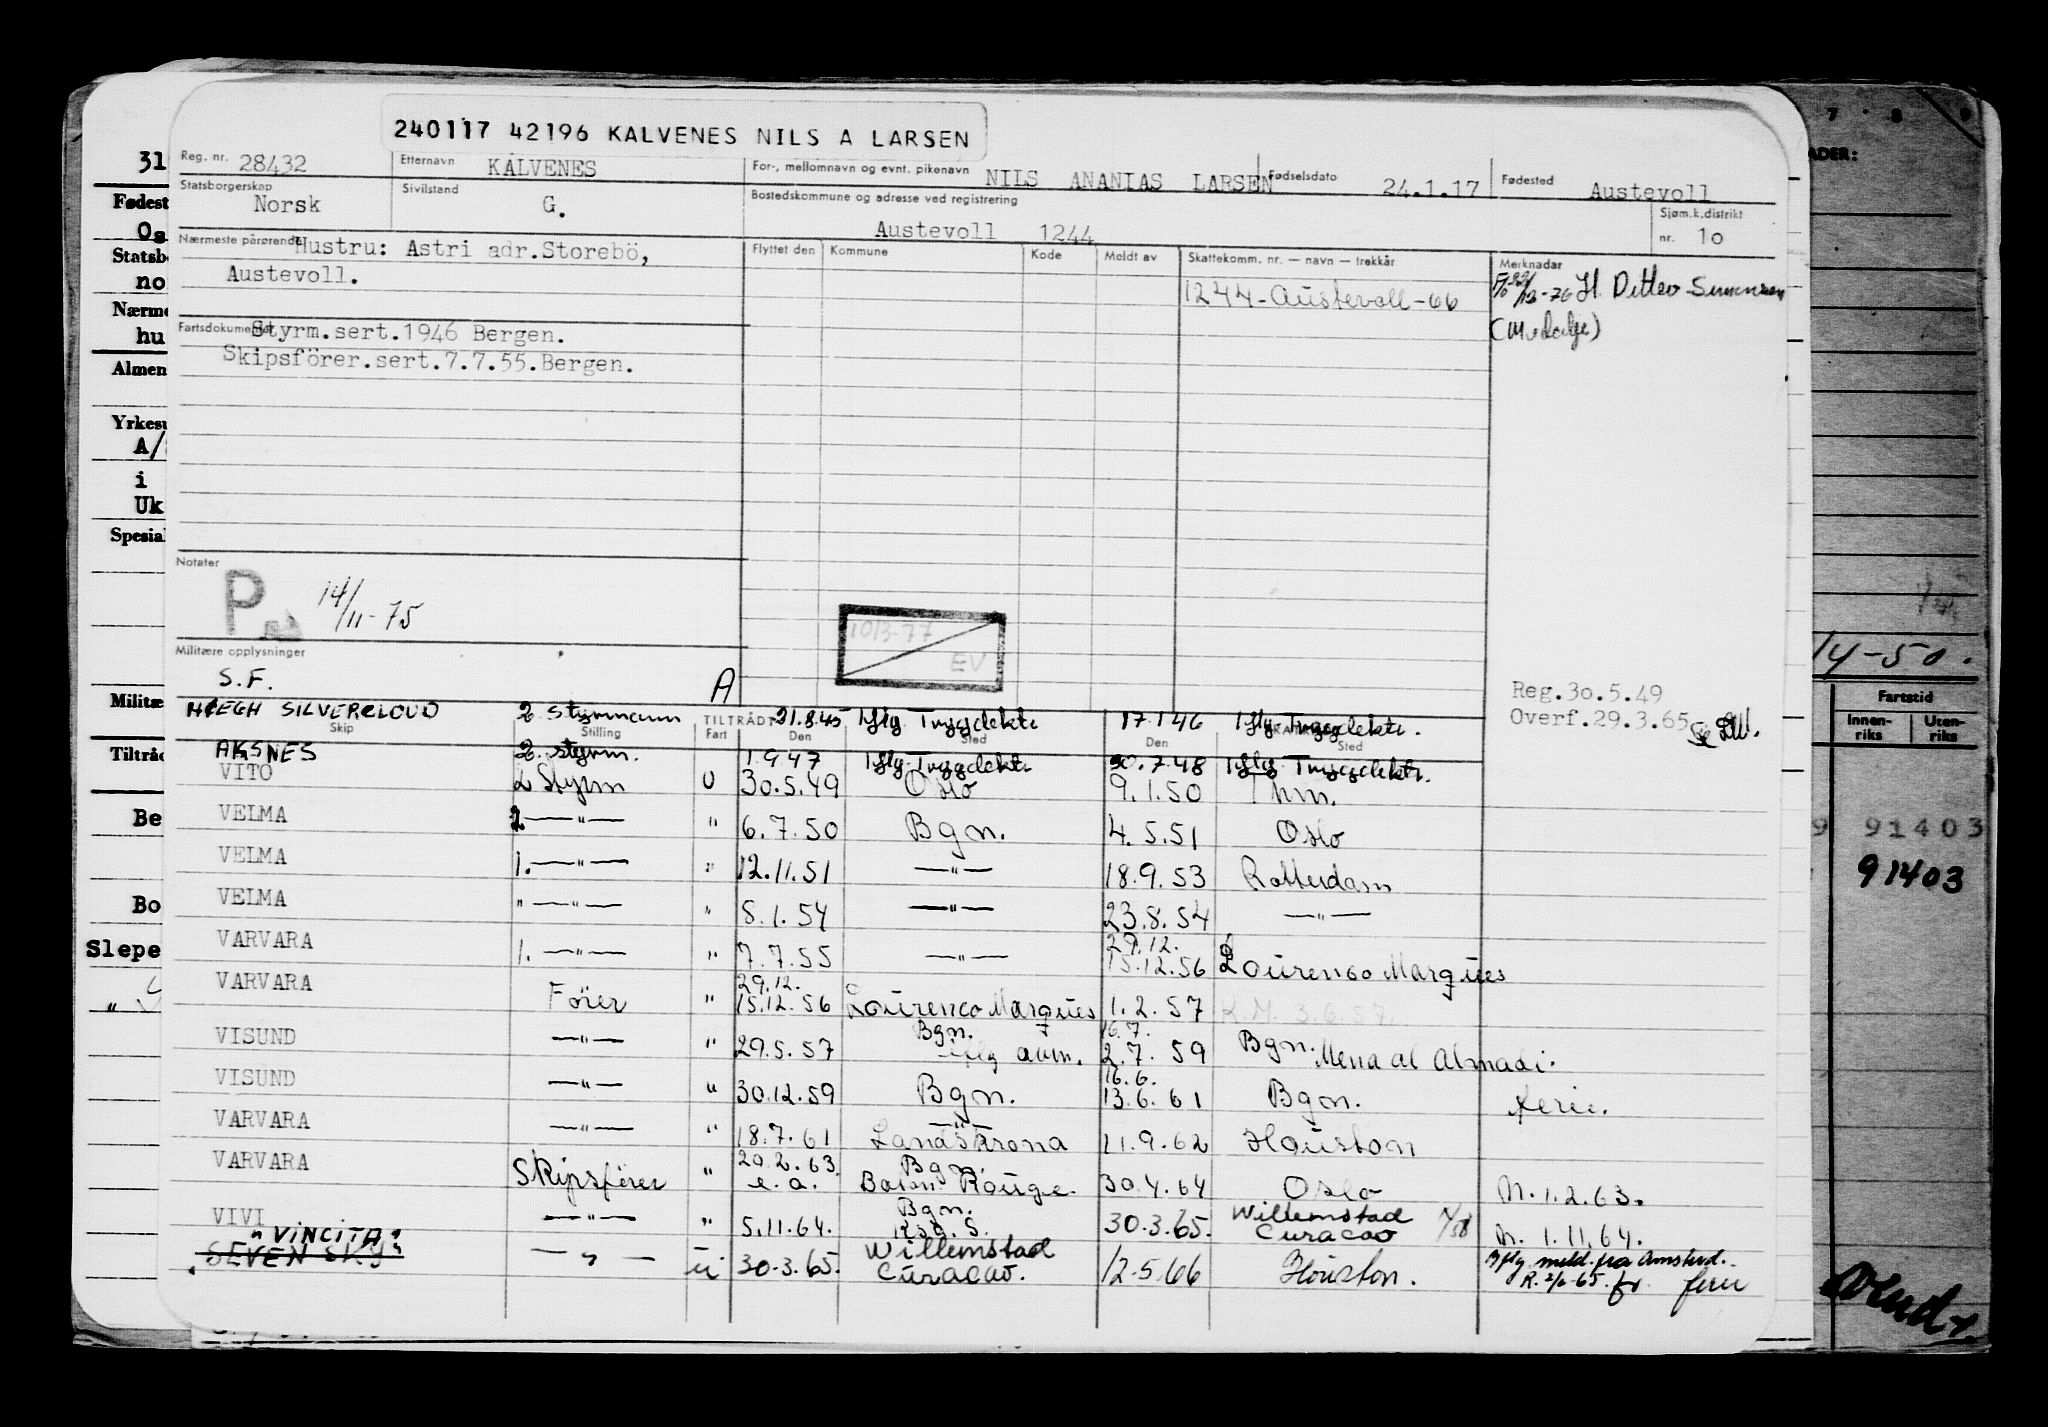 240117 42196 KALVENES NILS A LARSEN
Reg. nr. 28432 Etternavn KALVENES For-, mellomnavn og evnt. pikenavn NILS ANANIAS LARSEN Fødselsdato 24.1.17 Fødested Austevoll
Statsborgerskap Norsk Sivilstand G. Bostedskommune og adresse ved registrering Austevoll 1244 Sjøm.k.distrikt nr. 10
Nærmeste pårørende Hustru: Astri adr.Storebö,
Austevoll.
Flyttet den Kommune Kode Meldt av Skattekomm. nr. — navn — trekkår Merknadar
1244-Austevoll-66
12-76 H. Ditlev-Simonsen
(Medalje)
Fartsdokumenter Styrm.sert.1946 Bergen.
Skipsförer.sert.7.7.55.Bergen.
Notater
P 14/11-75
10/3-77
EV
Militære opplysninger
S.F. A
Reg.30.5.49
Overf.29.3.65
HØEGH SILVERCLOUD 2. styrmann 21.8.45 Iflg. Trygdektr. 17.1.46 Iflg. Trygdektr.
Skip Stilling TILTRÅDT Fart Den Sted Den Sted
AKSNES 2. styrm. 1947 Iflg. Trygdektr. 30.7.48 Iflg. Trygdektr.
VITO 2 Styrm U 30.5.49 Oslo 9.1.50 Thm.
VELMA 2. —"— " 6.7.50 Bgn. 4.5.51 Oslo
VELMA 1. —"— " 12.11.51 —"— 18.9.53 Rotterdam
VELMA " —"— " 8.1.54 —"— 23.8.54 —"—
VARVARA 1. —"— " 7.7.55 —"— 29.12. 15.12.56 Lourenco Marques
VARVARA Förer " 29.12. 15.12.56 Lourenco Marques 1.2.57 K.M. 3.6.57.
VISUND —"— " 29.5.57 Bgn. 16.7. 2.7.59 Bgn. Mena al Ahmadi.
VISUND —"— " 30.12.59 Bgn. 16.6. 13.6.61 Bgn. ferie.
VARVARA —"— " 18.7.61 —"— Landskrona 11.9.62 Houston
VARVARA Skipsförer " 20.2.63. e.a. Bgn. Baton Rouge. 30.4.64 Oslo M. 1.2.63.
VIVI —"— " 5.11.64. Bgn. 30.3.65. Willemstad Curacao M. 1.11.64.
" VINCITA "
SEVEN SKY —"— U 30.3.65. Willemstad Curacao. 12.5.66 Houston. Iflg. meld. fra Amsterd. ferie
31
Fødest
Statsb
no
Nærme
hu
Almen
Yrkesu
A/
i
Uk
Spesial
Militæ
Tiltråd
Be
Bo
Slepe
7 8 9
ADER:
14-50.
Fartstid
Innen-riks Uten-riks
9 91403
91403